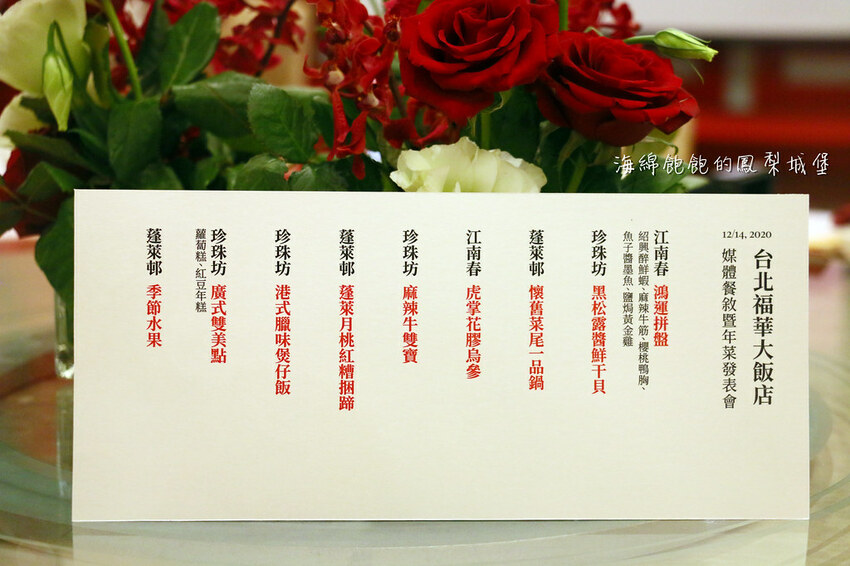 海綿飽飽的鳳梨城堡
12/14, 2020
台北福華大飯店
媒體餐敘暨年菜發表會
江南春 鴻運拼盤
紹興醉鮮蝦、麻辣牛筋、櫻桃鴨胸、
魚子醬墨魚、鹽焗黃金雞
珍珠坊 黑松露醬鮮干貝
蓬萊邨 懷舊菜尾一品鍋
江南春 虎掌花膠烏參
珍珠坊 麻辣牛雙寶
蓬萊邨 蓬萊月桃紅糟捆蹄
珍珠坊 港式臘味煲仔飯
珍珠坊 廣式雙美點
蘿蔔糕、紅豆年糕
蓬萊邨 季節水果